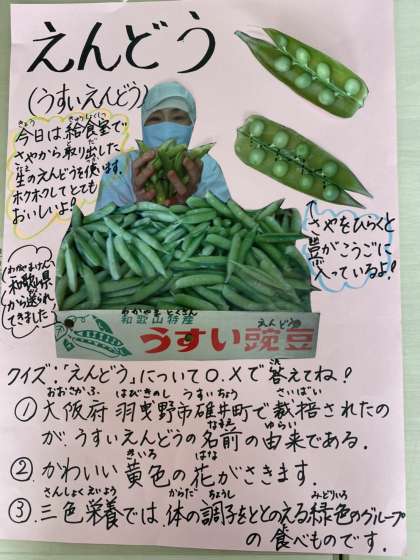 えんどう
(うすいえんどう)
今日は給食室で
さやから取り出した
生のえんどうを使います。
ホクホクしてとても
おいしいよ!
さやをひらくと
豆がこうごに
入っているよ!
和歌山県
から送られ
てきました
和歌山特産
うすい豌豆
クイズ:「えんどう」について○、×で答えてね!
① 大阪府 羽曳野市碓井町で栽培されたの
が、うすいえんどうの名前の由来である.
② かわいい黄色の花がさきます.
③ 三色栄養では、体の調子をととのえる緑色のグループ
の食べものです.